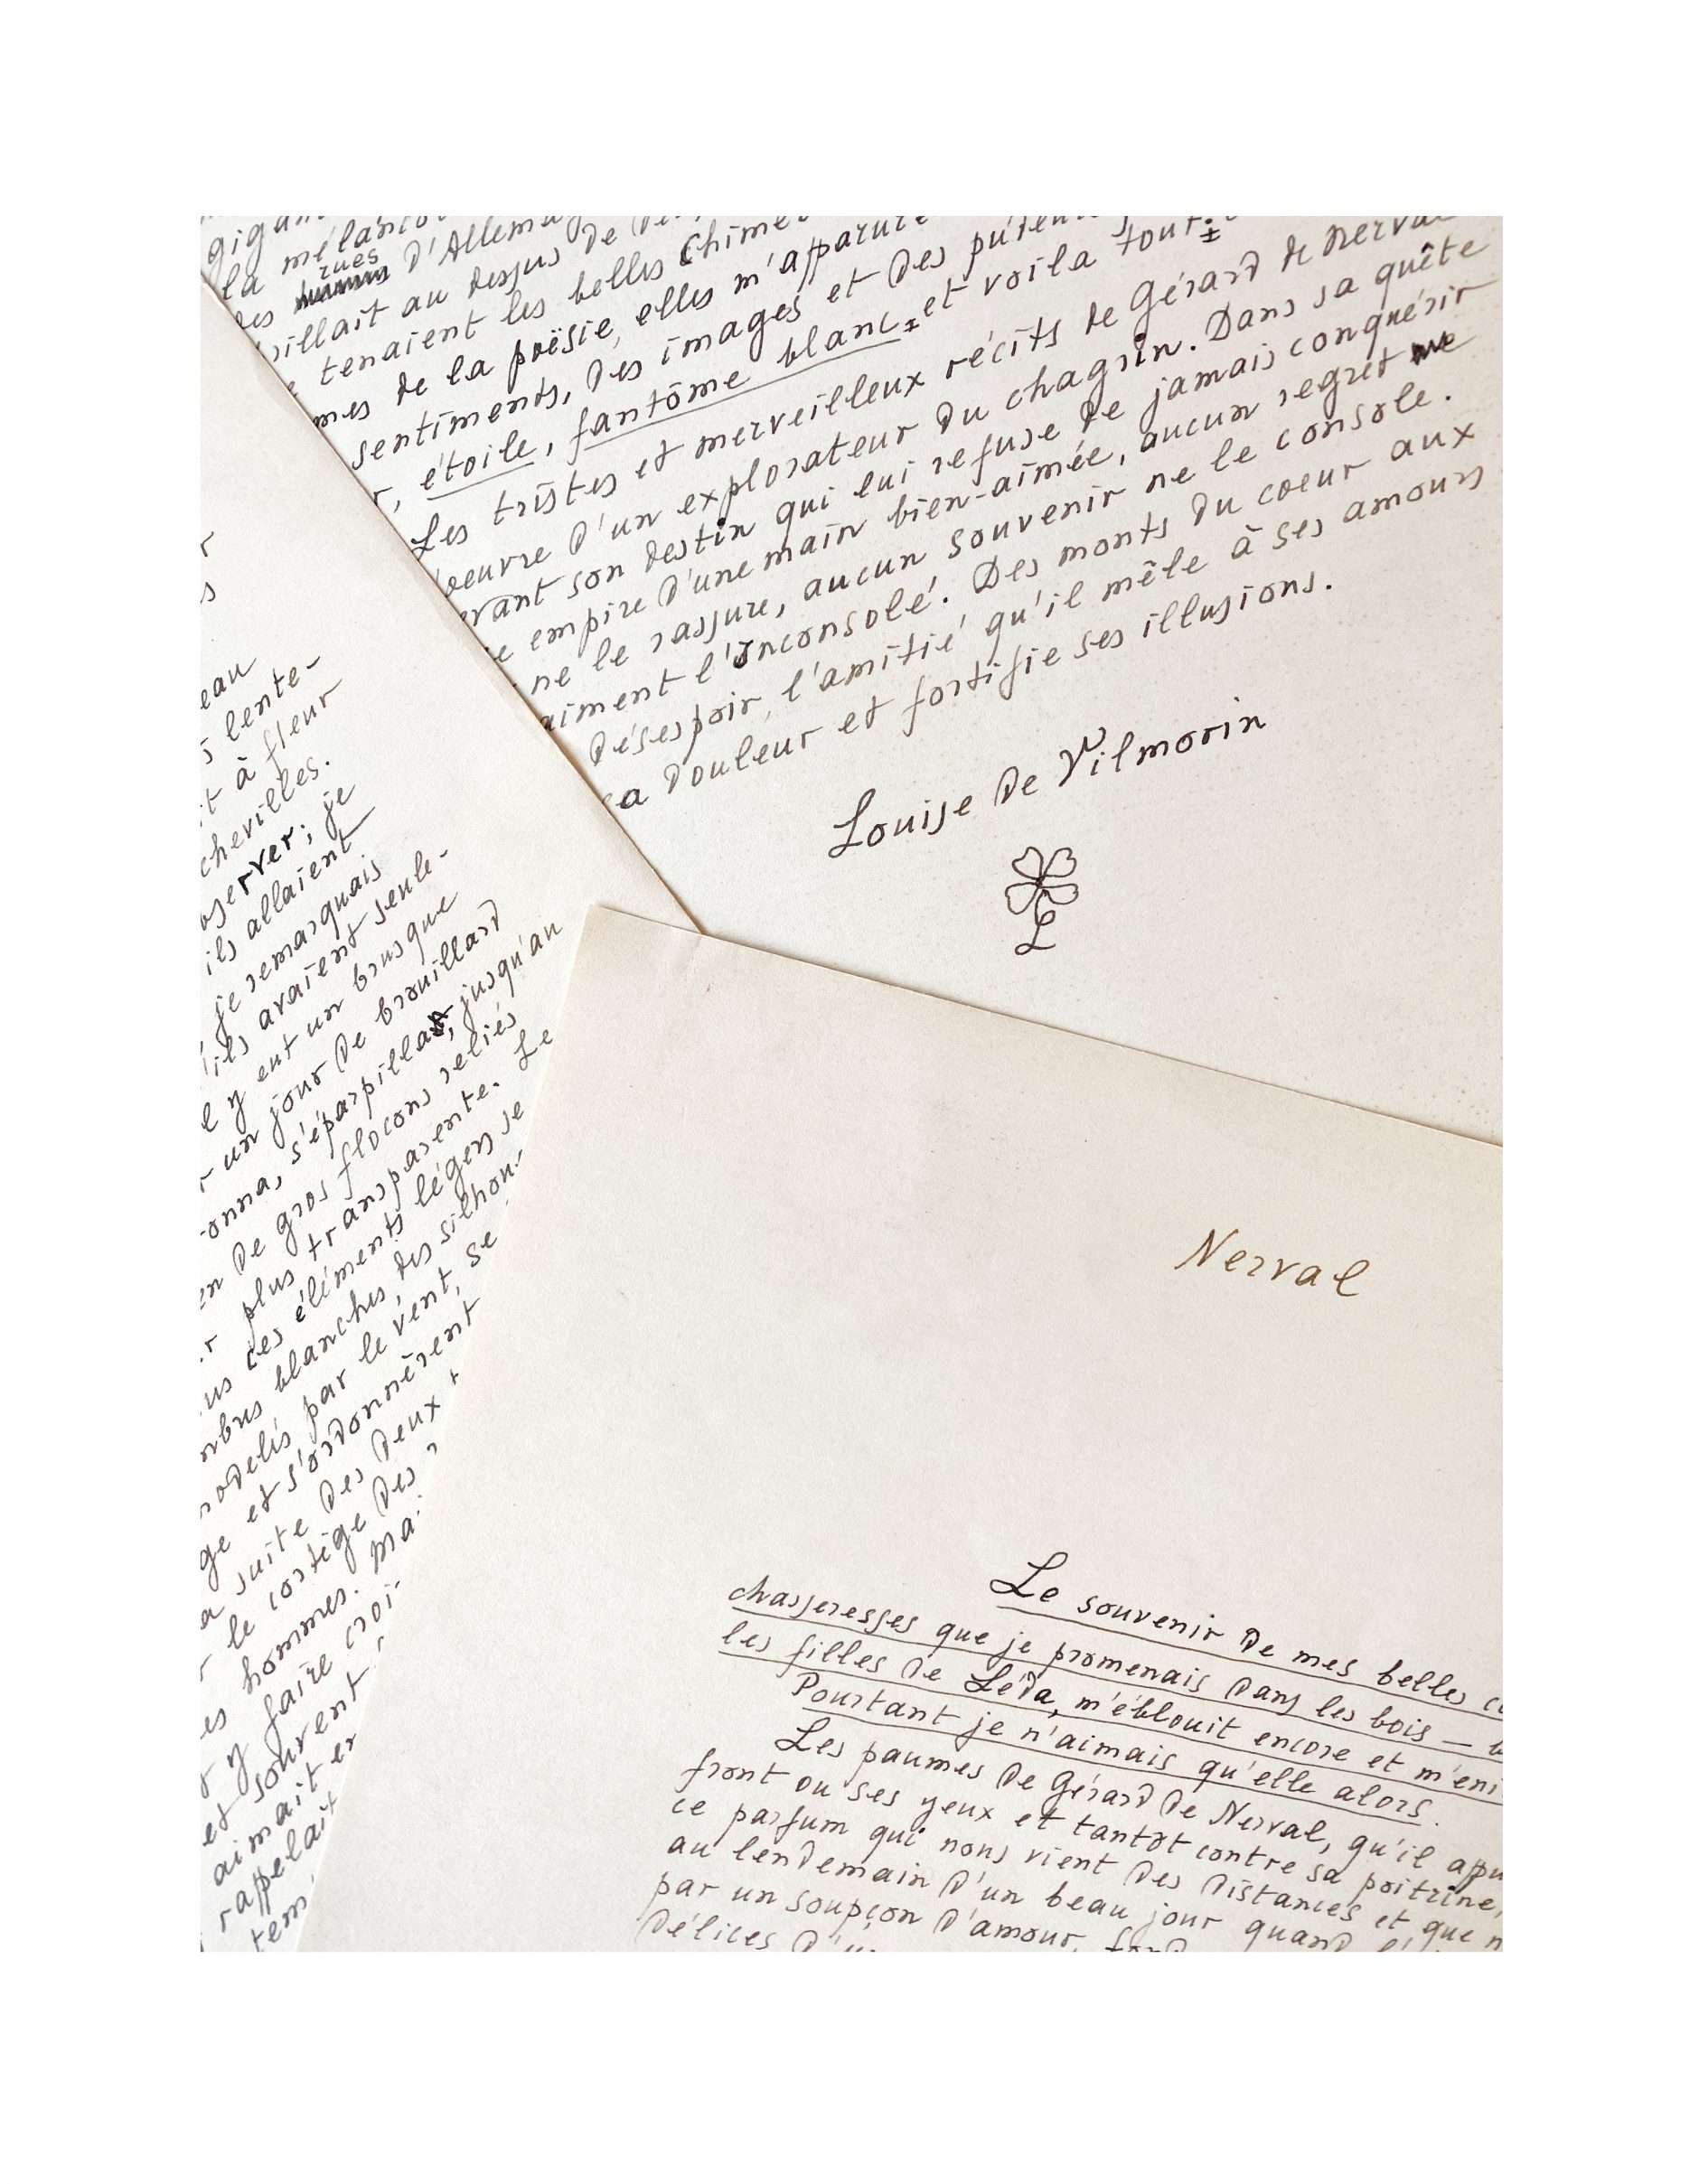 la
rues
des d'Allemag
au dessus de
tenaient les belles Chimè
mes de la poësie, elles m'apparure
sentiments, des images et des
étoile, fantôme blanc et voila tout
Les tristes et merveilleux récits de Gérard de Nerval
oeuvre d'un explorateur du chagrin. Dans sa quête
son destin qui lui refuse de jamais conquérir
empire d'une main bien-aimée, aucun regret
ne le rassure, aucun souvenir ne le console.
aiment l'inconsolé. Des monts du coeur aux
désespoir, l'amitié qu'il mêle à ses amours
sa douleur et fortifie ses illusions.
Louise de Vilmorin
L
eau
lente-
à fleur
chevilles.
server; je
ils allaient
je remarquais
ils avaient seule-
y eut un brusque
un jour de brouillard
onna, s'éparpilla, jusqu'au
en de gros flocons reliés
plus transparente. Le
ces éléments légers se
blanches, des silhou-
modelés par le vent, se
et s'ordonnèrent
suite des deux
le cortège des
hommes. Ma
y faire croi-
et souvent
aimait
rappelait
Nerval
Le souvenir de mes belles
chasseresses que je promenais dans les bois —
les filles de Léda, m'éblouit encore et m'eni
Pourtant je n'aimais qu'elle alors.
Les paumes de Gérard de Nerval, qu'il appu
front ou ses yeux et tantôt contre sa poitrine,
ce parfum qui nous vient des distances et que n
au lendemain d'un beau jour quand
par un soupçon d'amour,
délices